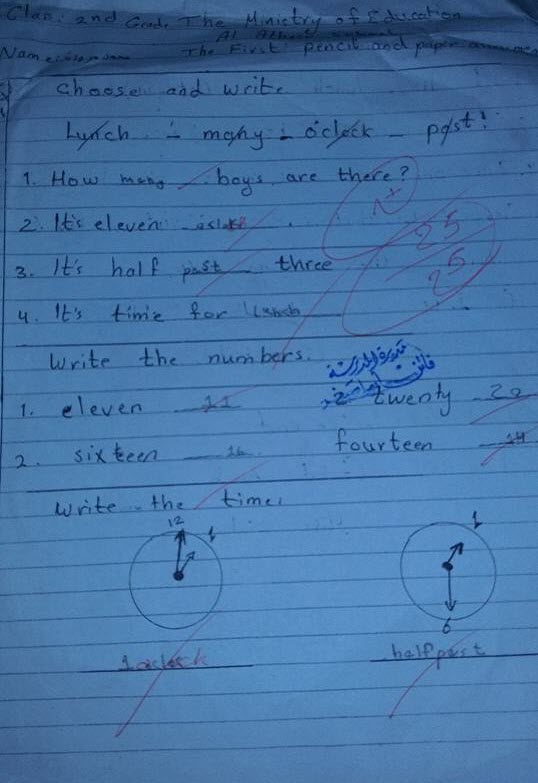 Class: 2nd Grade The Ministry of Education
Name: The First pencil and paper
Choose and write
Lunch - many - o'clock - past!
1. How many boys are there?
2. It's eleven oclock.
25
25
3. It's half past three
4. It's time for lunch
Write the numbers.
1. eleven 11 twenty 20
2. sixteen 16 fourteen 14
Write the time.
12 1 1
6
1 oclock half past